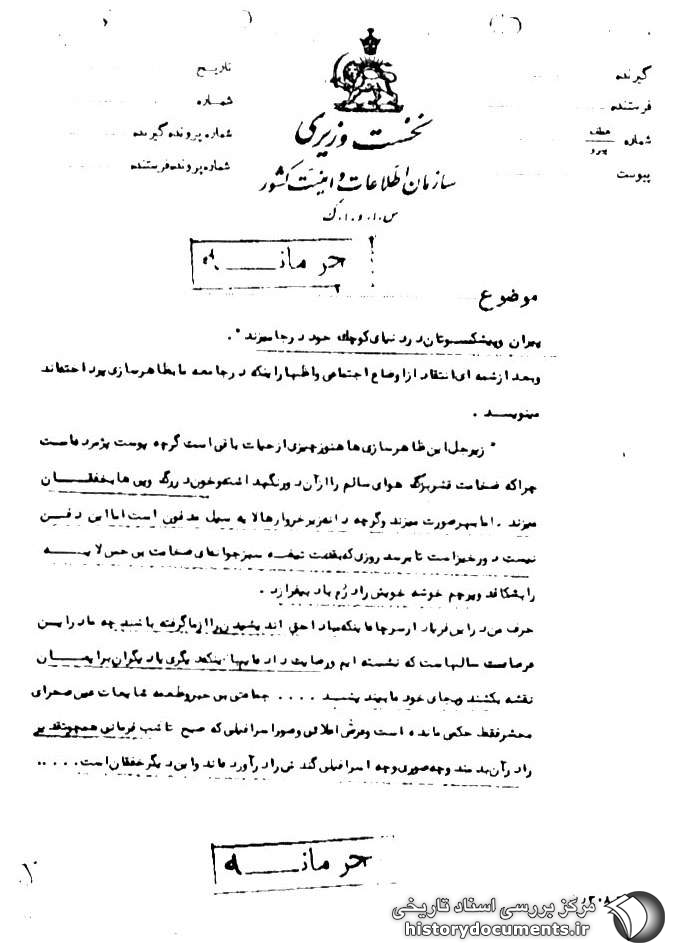 گیرنده
فرستنده
شماره
عطف
پیرو
پیوست
تاریخ
شماره
شماره پرونده گیرنده
شماره پرونده فرستنده
نخست وزیری
سازمان اطلاعات و امنیت کشور
س.ا.و.ا.ک
محرمانه
موضوع
پیران و پیشکسوتان در دنیای کوچک خود در جا میزند".
و بعد از شمه ای انتقاد از اوضاع اجتماعی و اظهار اینکه در جامعه ما بظاهر سازی پرداخته‌اند
مینویسد .
" زیر جل این ظاهر سازی ها هنوز چیزی از حیات باقی است گرچه پوست پژمرده است
چرا که ضخامت قشر بزرگ هوای سالم را از آن دور نگهداشته و خون در رگ و پی ها بخفقان
میزند . اما بهر صورت میزند و گرچه دانه زیر خروارها لایه سمل مدفون است اما این دفن
نیست دور خیز است تا برسد روزی که بقدمت تیغه سبز جوانه‌ای ضخامت بی حس لایه
را بشکافد و پرچم خوشه خویش را در رُم باد بیفرازد .
حرف
فرصت سالهاست که نشسته ایم و رضایت داده‌ایم باینکه دیگری یا دیگران برایمان
نقشه بکشند و بجای خود ما بیندیشند .... جماعتی بی خبر و طعمه شایعات عین صحرای
محشر فقط حکمی مانده است و عرش اعلائی و صور اسرافیلی که صبح تا شب فرمانی همچو تقدیر
را در آن بدمند و چه صوری و چه اسرافیلی گندش را در آورده‌اند و این دیگر خفقان است .....
محرمانه
مرکز بررسی اسناد تاریخی
historydocuments.ir